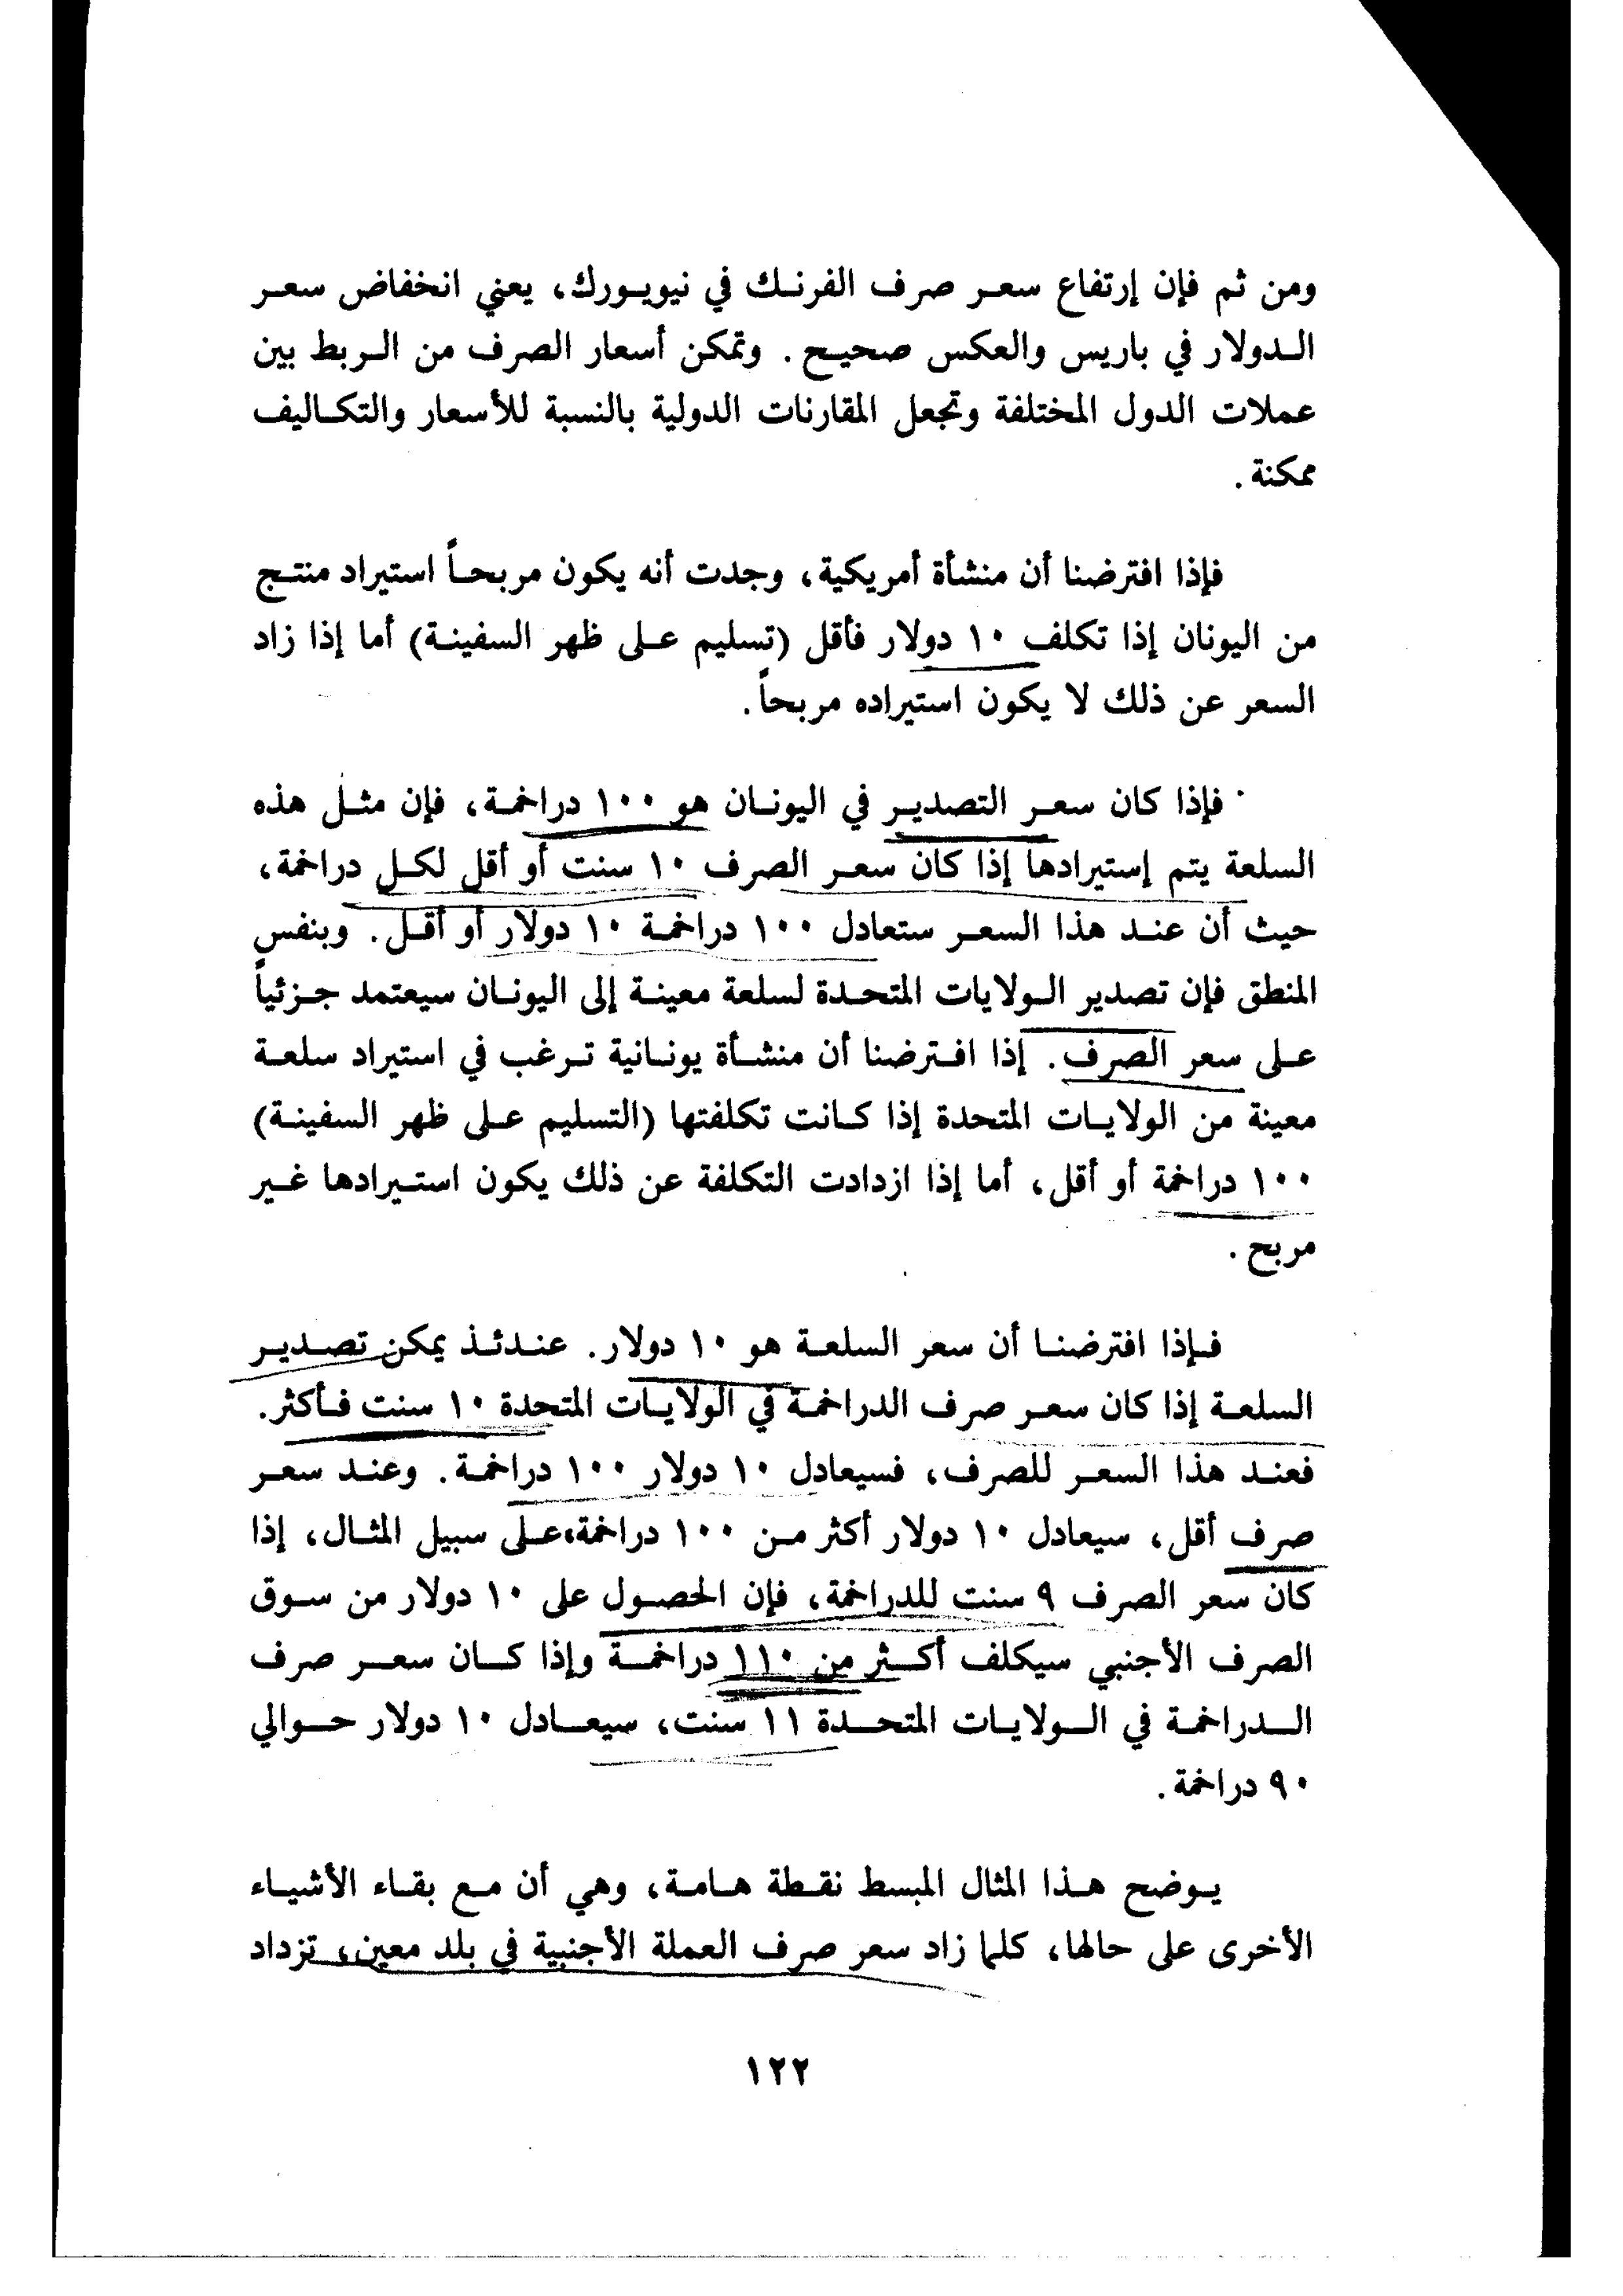 ومن ثم فإن إرتفاع سعر صرف الفرنك في نيويورك، يعني انخفاض سعر
الدولار في باريس والعكس صحيح. وتمكن أسعار الصرف من الربط بين
عملات الدول المختلفة وتجعل المقارنات الدولية بالنسبة للأسعار والتكاليف
ممكنة.
فإذا افترضنا أن منشأة أمريكية، وجدت أنه يكون مربحاً استيراد منتج
من اليونان إذا تكلف ١٠ دولار فأقل (تسليم على ظهر السفينة) أما إذا زاد
السعر عن ذلك لا يكون استيراده مربحاً.
فإذا كان سعر التصدير في اليونان هو ١٠٠ دراخمة، فإن مثل هذه
السلعة يتم إستيرادها إذا كان سعر الصرف ١٠ سنت أو أقل لكل دراخمة،
حيث أن عند هذا السعر ستعادل ١٠٠ دراخمة ١٠ دولار أو أقل. وبنفس
المنطق فإن تصدير الولايات المتحدة لسلعة معينة إلى اليونان سيعتمد جزئياً
على سعر الصرف. إذا افترضنا أن منشأة يونانية ترغب في استيراد سلعة
معينة من الولايات المتحدة إذا كانت تكلفتها (التسليم على ظهر السفينة)
١٠٠ دراخمة أو أقل، أما إذا ازدادت التكلفة عن ذلك يكون استيرادها غير
مربح.
فإذا افترضنا أن سعر السلعة هو ١٠ دولار. عندئذ يمكن تصدير
السلعة إذا كان سعر صرف الدراخمة في الولايات المتحدة ١٠ سنت فأكثر.
فعند هذا السعر للصرف، فسيعادل ١٠ دولار ١٠٠ دراخمة. وعند سعر
صرف أقل، سيعادل ١٠ دولار أكثر من ١٠٠ دراخمة، على سبيل المثال، إذا
كان سعر الصرف ٩ سنت للدراخمة، فإن الحصول على ١٠ دولار من سوق
الصرف الأجنبي سيكلف أكثر من ١١٠ دراخمة وإذا كان سعر صرف
الدراخمة في الولايات المتحدة ١١ سنت، سيعادل ١٠ دولار حوالي
٩٠ دراخمة.
يوضح هذا المثال المبسط نقطة هامة، وهي أن مع بقاء الأشياء
الأخرى على حالها، كلما زاد سعر صرف العملة الأجنبية في بلد معين، تزداد
١٢٢